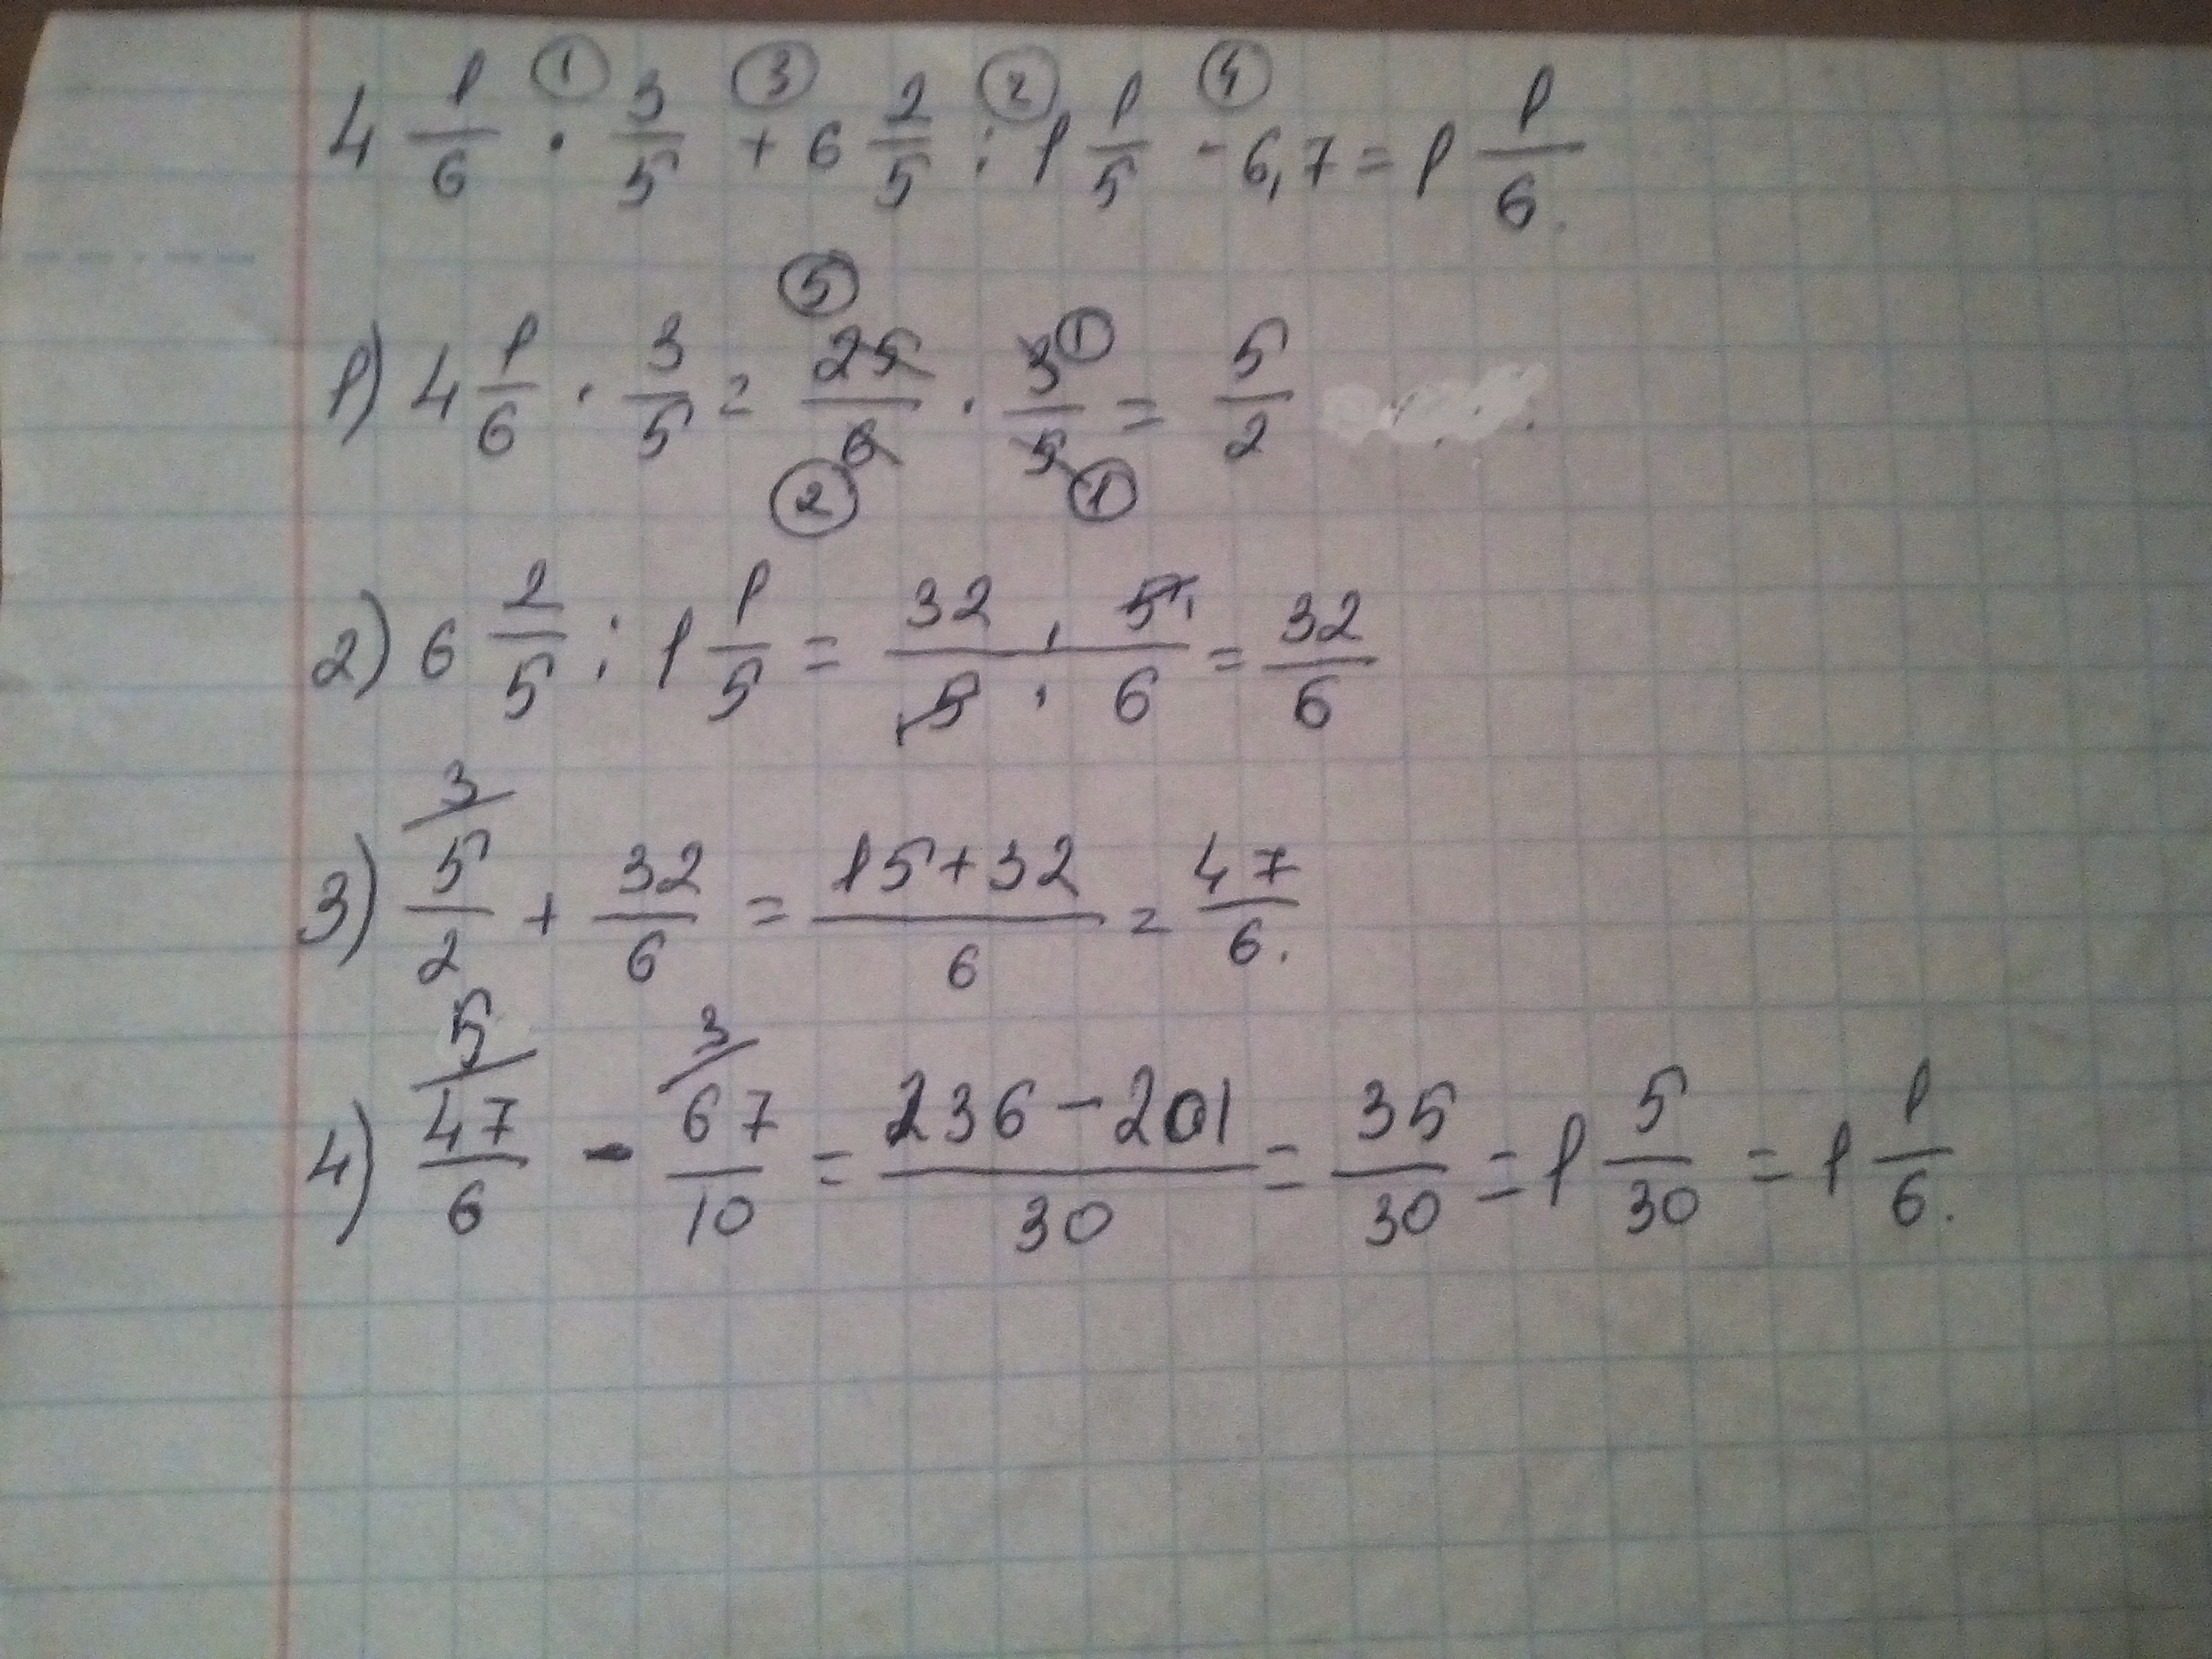 4 1/6 · 3/5 + 6 2/5 : 1 1/5 - 6,7 = 1 1/6.
1) 4 1/6 · 3/5 = 25/6 · 3/5 = 5/2
2) 6 2/5 : 1 1/5 = 32 · 5/5 · 6 = 32/6
3) 5/2 + 32/6 = 15+32/6 = 47/6.
4) 47/6 - 67/10 = 236-201/30 = 35/30 = 1 5/30 = 1 1/6.